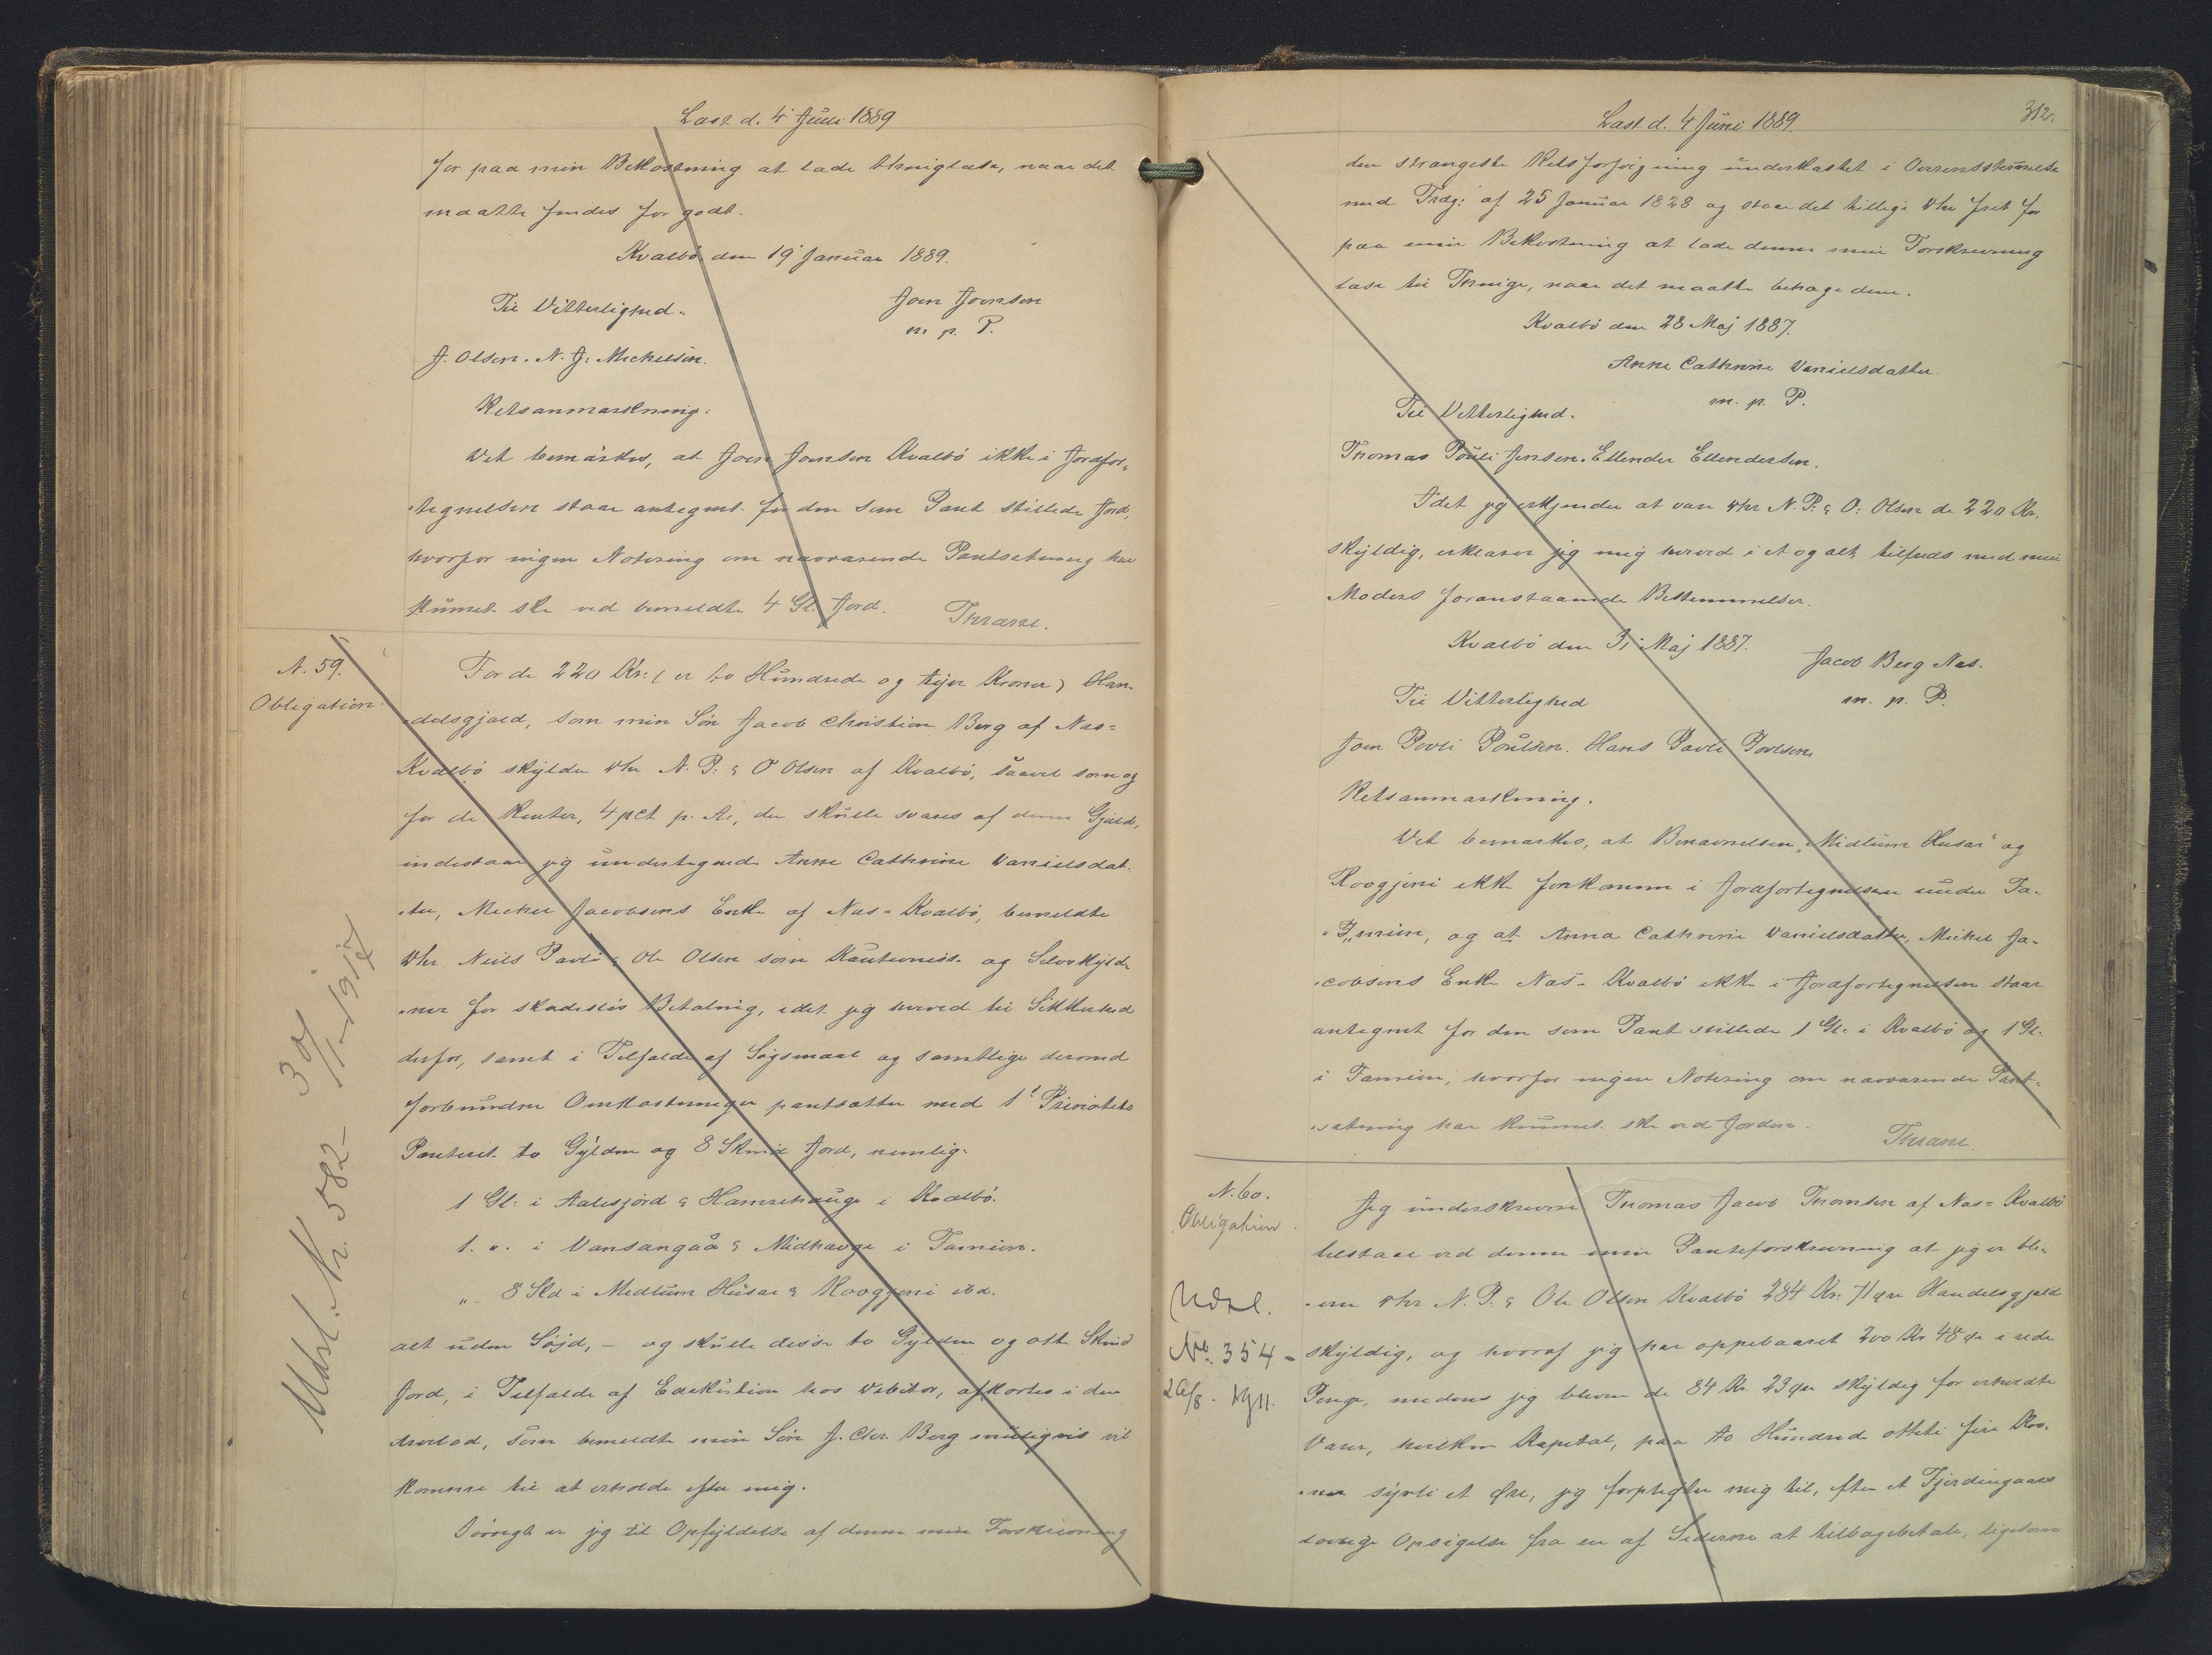 Læst d. 4 Juni 1889
for paa min Bekostning at lade thinglæse, naar det
maatte findes for godt.
Kvalbø den 19 Januar 1889.
Til Vitterlighed.
Joen Joensen
m. p. P.
J. Olsen. N. J. Michelsen.
Retsanmærkning:
Det bemærkes, at Joen Joensen Kvalbø ikke i Jordfor-
tegnelsen staar antegnet for den som Pant stillede Jord,
hvorfor ingen Notering om nærværende Pantsætning har
kunnet ske ved bemeldte 4 Gl. Jord.
Thrane.
N. 59.
Obligation.
For de 220 Kr: (er to Hundrede og tyve Kroner) Han-
delsgjæld, som min Søn Jacob Christian Berg af Næs=
Kvalbø skylder Dhr N. P. & O Olsen af Kvalbø, saavel som og
for de Renter, 4 pCt p. A., der skulle svares af denne Gjæld,
indestaar jeg undertegnede Anne Cathrine Danielsdat-
ter, Michel Jacobsens Enke af Næs=Kvalbø, bemeldte
Dhr Niels Pavli & Ole Olsen som Kautionist og Selvskyld-
ner for skadesløs Betaling, idet jeg herved til Sikkerhed
derfor, samt i Tilfælde af Søgsmaal og samtlige dermed
forbundne Omkostninger pantsætter med 1ste Prioritets
Panteret to Gylden og 8 Skind Jord, nemlig:
1 Gl. i Aalesjord & Hamrehauge i Kvalbø.
1. ". i Vansangaå & Midhauge i Famien.
" 8 Skd i Medlum Húsar & Roogjeni ibd.
alt uden Søjd, - og skulle disse to Gylden og otte Skind
Jord, i Tilfælde af Exekution hos Debitor, afkortes i den
Arvelod, som bemeldte min Søn J. Chr. Berg muligvis vil
komme til at erholde efter mig.
Iøvrigt er jeg til Opfyldelse af denne min Forskrivning
Udsl. Nr. 582 -
Læst d. 4 Juni 1889.
312.
den strængeste Retsforfølgning underkastet i Overensstemmelse
med Frdg: af 25 Januar 1828 og staar det tillige Dhr frit for
paa min Bekostning at lade denne min Forskrivning
læse til Thinge, naar det maatte behage dem.
Kvalbø den 28 Maj 1887.
Anne Cathrine Danielsdatter.
m. p. P.
Til Vitterlighed.
Thomas Pouli Jensen. Ellender Ellendersen.
Idet jeg erkjender at være Dhr N. P. & O. Olsen de 220 Kr.
skyldig, erklærer jeg mig herved i et og alt tilfreds med min
Moders foranstaaende Bestemmelser.
Kvalbø den 31 Maj 1887.
Jacob Berg Næs.
m. p. P.
Til Vitterlighed
Joen Povli Poulsen. Hans Pavli Povlsen
Retsanmærkning.
Det bemærkes, at Benævnelsen "Midlum Husar" og
Roogjeni ikke forekomme i Jordfortegnelsen under Fa-
mien, og at Anna Cathrine Danielsdatter, Michel Ja-
cobsens Enke Næs=Kvalbø ikke i Jordfortegnelsen staar
antegnet for den som Pant stillede 1 Gl. i Kvalbø og 1 Gl.
i Famien, hvorfor ingen Notering om nærværende Pant-
sætning har kunnet ske ved Jorden.
Thrane
N. 60.
Obligation.
Jeg underskrevne Thomas Jacob Thomsen af Næs=Kvalbø
tilstaar ved denne min Panteforskrivning at jeg er ble-
ven Dhr N. P. & Ole Olsen Kvalbø 284 Kr. 71 Øre Handelsgjæld
skyldig, og hvoraf jeg har oppebaaret 200 Kr 48 Ø i rede
Penge, medens jeg bleven de 84 Kr. 23 Øre skyldig for erholdte
Varer, hvilken Kapital, paa to Hundrede otteti fire Kro-
ner syvti et Øre, jeg forpligter mig til, efter et Fjerdingaars
lovlige Opsigelse fra en af Siderne at tilbagebetale, ligesom
Udsl.
No. 354 -
26/8. 1911.